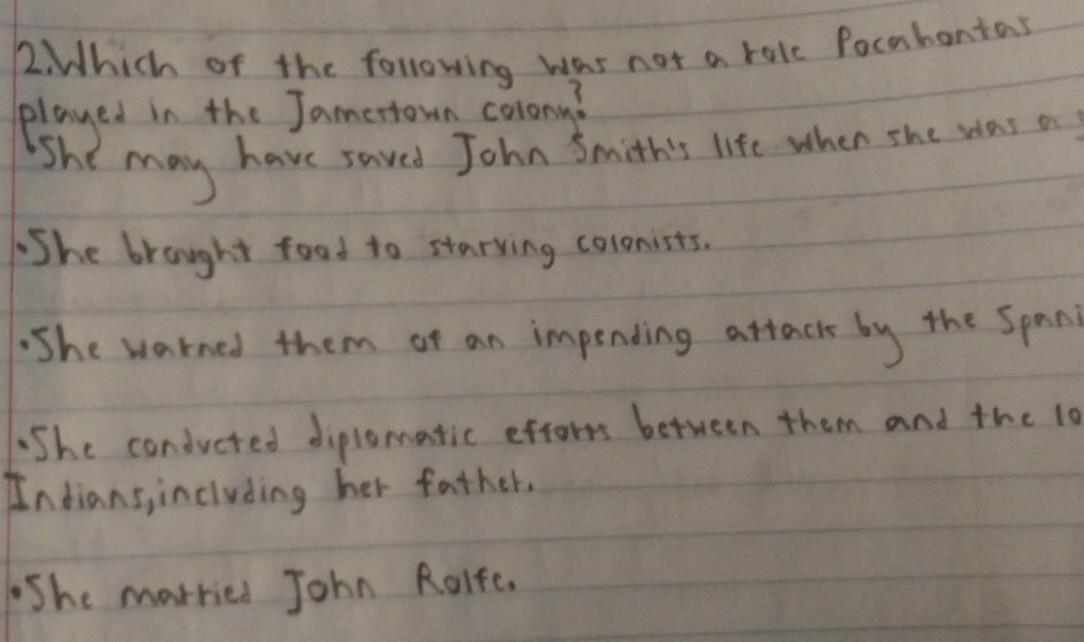 2.Which of the following was not a role Pocahontas
played in the Jamestown colony?
•She may have saved John Smith's life when she was a
•She brought food to starving colonists.
•She warned them of an impending attack by the Spani
•She conducted diplomatic efforts between them and the lo
Indians, including her father.
•She married John Rolfe.